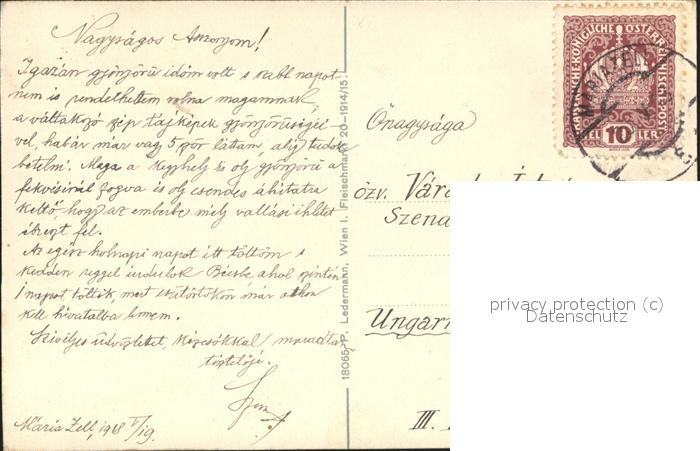 Nagyságos Asszonyom!
Igazán gyönyörű időm volt s kabb napot
nem is rendelhettem volna magamnak,
a váltakozó szép tájképek gyönyörűségei-
vel, habár már vagy 5ször láttam alig tudok
betelni. Maga a kegyhely és oly gyönyörű a
fekvésénél fogva és oly csendes áhitatra
keltő, hogy az emberbe mély vallási ihletet
ébreszt fel.
Az egész holnapi napot itt töltöm s
kedden reggel indulok Bécsbe ahol szintén
1 napot töltök, mert csütörtökön már otthon
kell hivatalba lennem.
Szívélyes üdvözlettel, kézcsókkal maradtam
tisztelője.
Mária Zell, 1918 V/19.
18065 P. Ledermann, Wien I. Fleischmarkt 20-1914/15.
KAISERLICHE KÖNIGLICHE ÖSTERREICHISCHE POST
HELLER 10
MARIAZELL
Önagysága
özv. Vára
Szena
Ungarn
III.
privacy protection (c)
Datenschutz